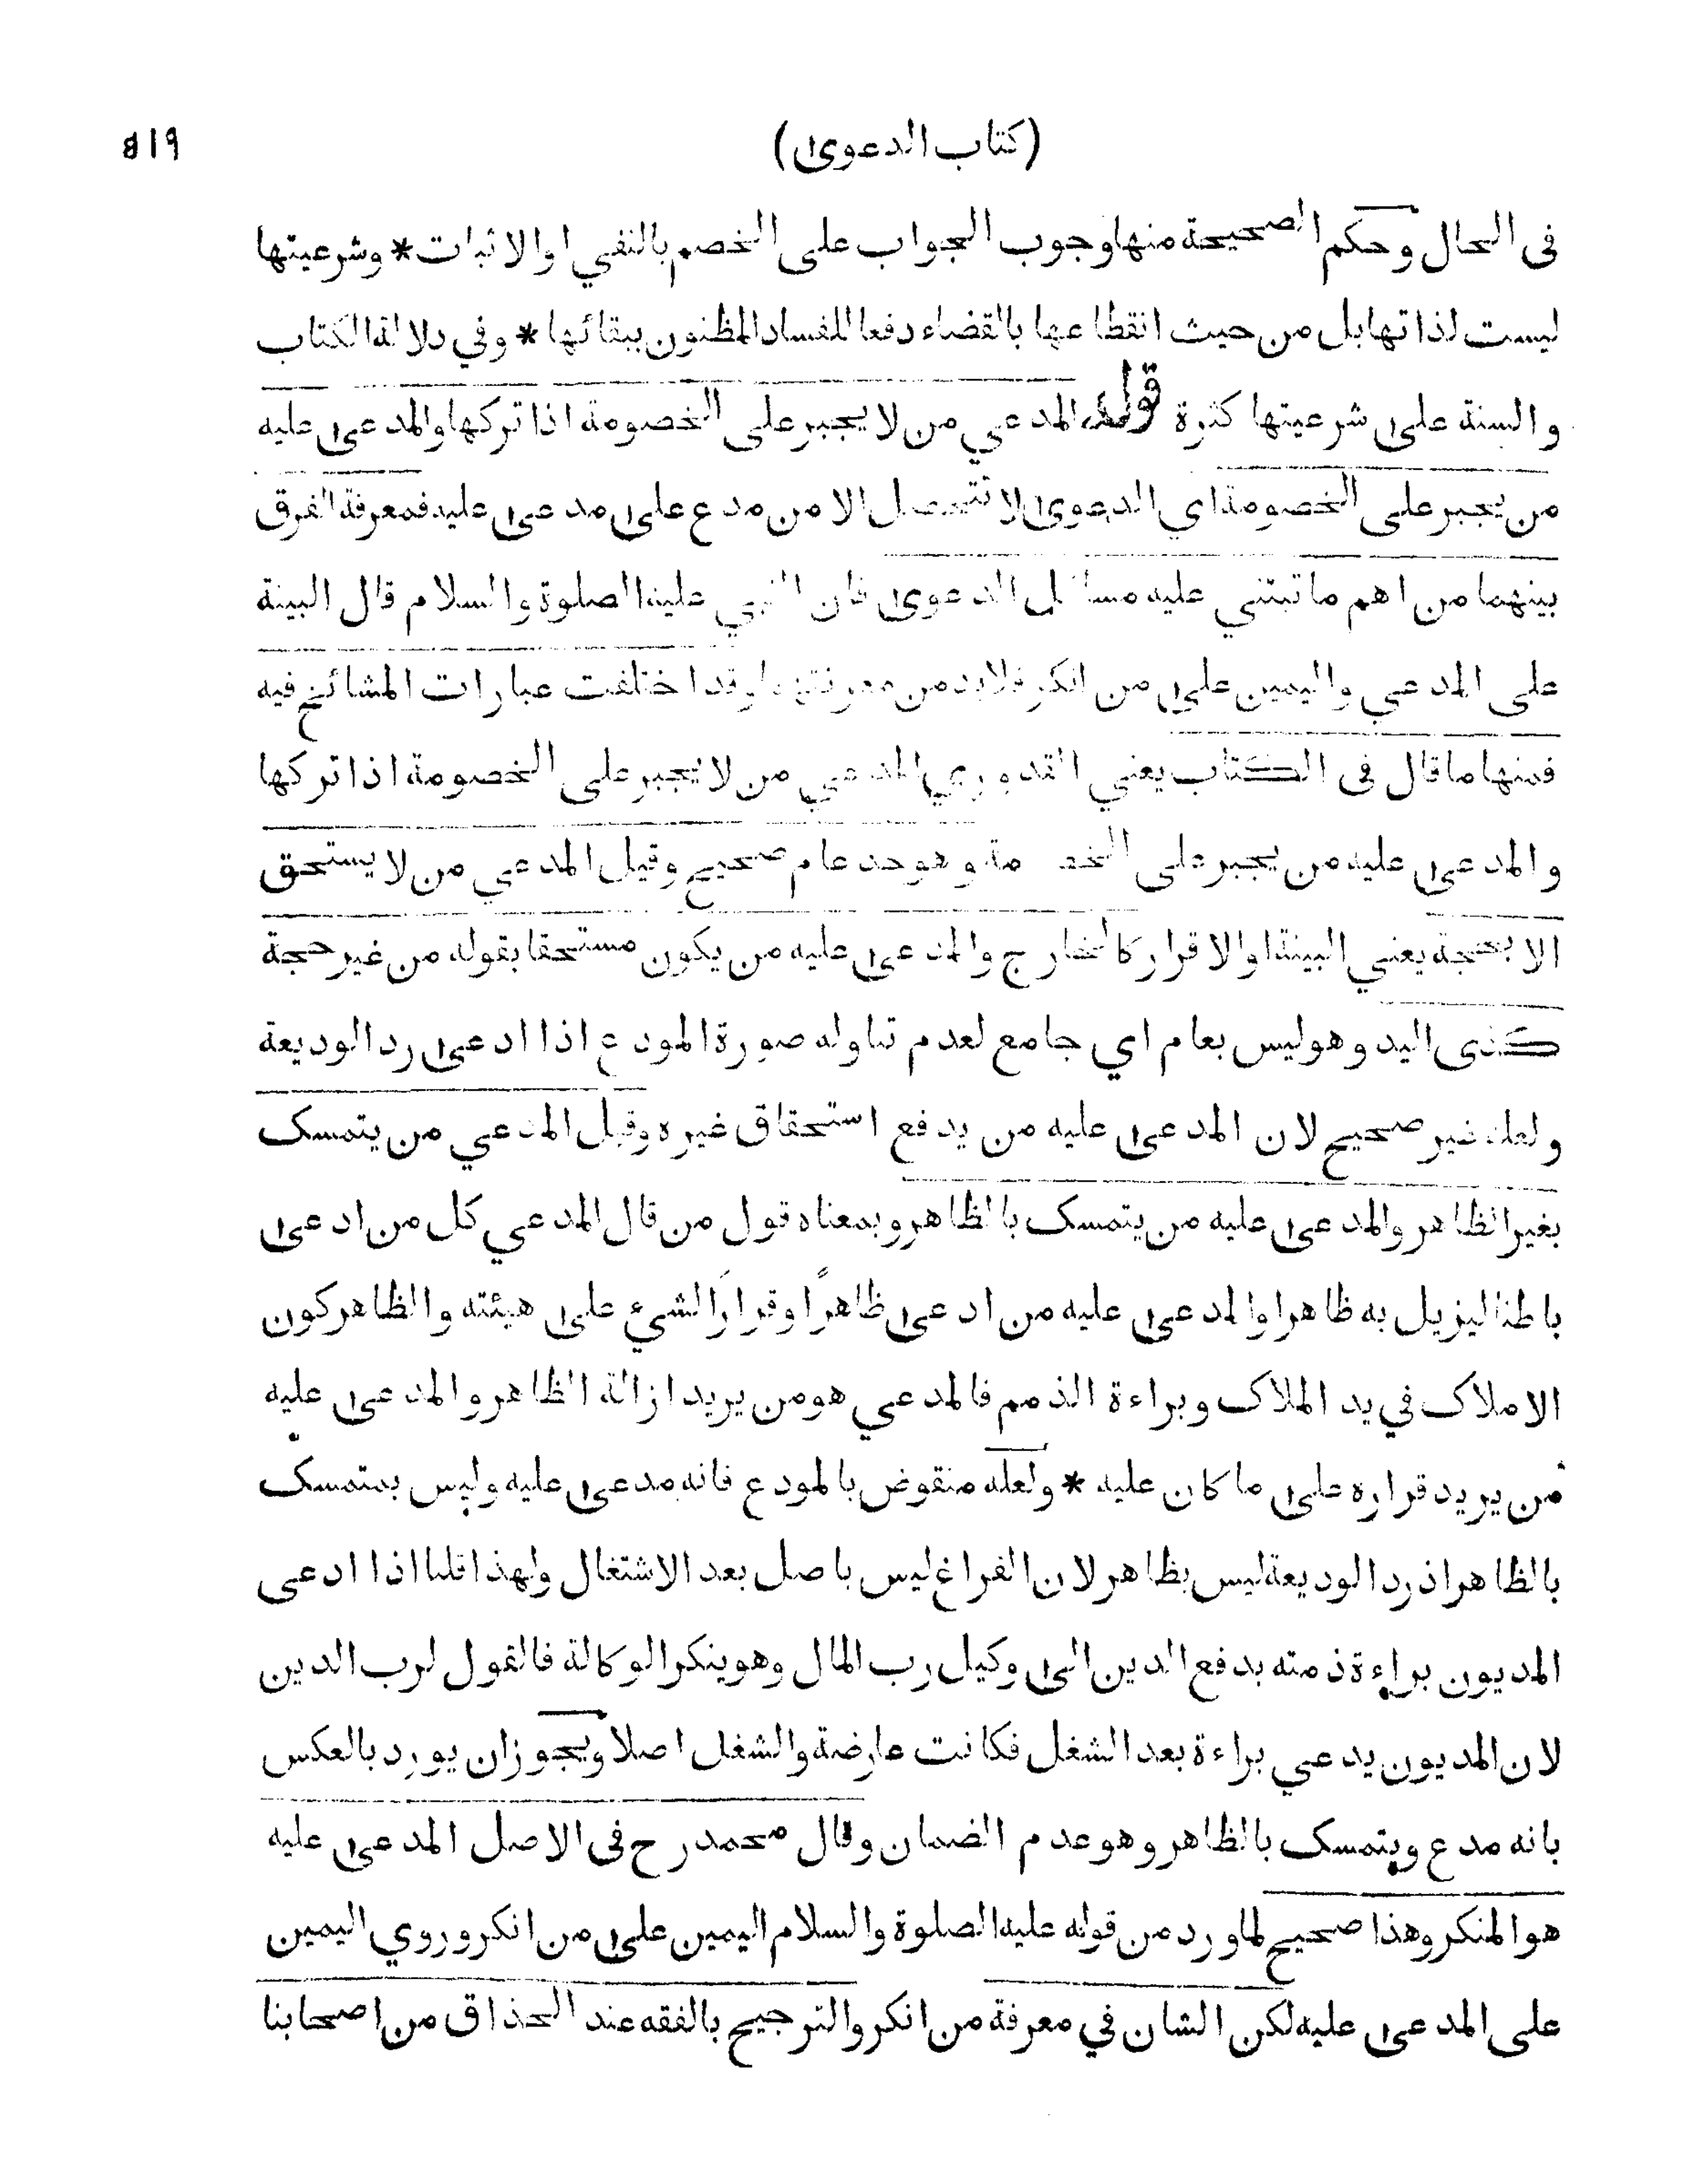 (كتاب الدعوى) ٥١٩
فى الحال وحكم الصحيحة منها وجوب الجواب على الخصم بالنفي او الاثبات * وشرعيتها
ليست لذاتها بل من حيث انقطاعها بالقضاء دفعا للفساد المظنون ببقائها * وفي دلالة الكتاب
والسنة على شرعيتها كثرة قوله المدعي من لا يجبر على الخصومة اذا تركها والمدعى عليه
من يجبر على الخصومة اي الدعوى لا تتحصل الا من مدع على مدعى عليه فمعرفة الفرق
بينهما من اهم ما تبتني عليه مسائل الدعوى فان النبي عليه الصلوة والسلام قال البينة
على المدعي واليمين على من انكر فلابد من معرفتهما وقد اختلفت عبارات المشائخ فيه
فمنها ما قال فى الكتاب يعني القدوري المدعي من لا يجبر على الخصومة اذا تركها
والمدعى عليه من يجبر على الخصومة وهو حد عام صحيح وقيل المدعي من لا يستحق
الا بحجة يعني البينة او الاقرار كالخارج والمدعى عليه من يكون مستحقا بقوله من غير حجة
كذى اليد وهو ليس بعام اي جامع لعدم تناوله صورة المودع اذا ادعى رد الوديعة
ولعله غير صحيح لان المدعى عليه من يدفع استحقاق غيره وقيل المدعي من يتمسك
بغير الظاهر والمدعى عليه من يتمسك بالظاهر وبمعناه قول من قال المدعي كل من ادعى
باطنا ليزيل به ظاهرا والمدعى عليه من ادعى ظاهرًا وقرارًا لشيء على هيئته والظاهر كون
الاملاك في يد الملاك وبراءة الذمم فالمدعي هو من يريد ازالة الظاهر والمدعى عليه
من يريد قراره على ما كان عليه * ولعله منقوض بالمودع فانه مدعى عليه وليس بمتمسك
بالظاهر اذ رد الوديعة ليس بظاهر لان الفراغ ليس باصل بعد الاشتغال ولهذا قلنا اذا ادعى
المديون براءة ذمته بدفع الدين الى وكيل رب المال وهو ينكر الوكالة فالقول لرب الدين
لان المديون يدعي براءة بعد الشغل فكانت عارضة والشغل اصلا ويجوز ان يورد بالعكس
بانه مدع ويتمسك بالظاهر وهو عدم الضمان وقال محمد رح فى الاصل المدعى عليه
هو المنكر وهذا صحيح لما ورد من قوله عليه الصلوة والسلام اليمين على من انكر وروي اليمين
على المدعى عليه لكن الشان في معرفة من انكر والترجيح بالفقه عند الحذاق من اصحابنا